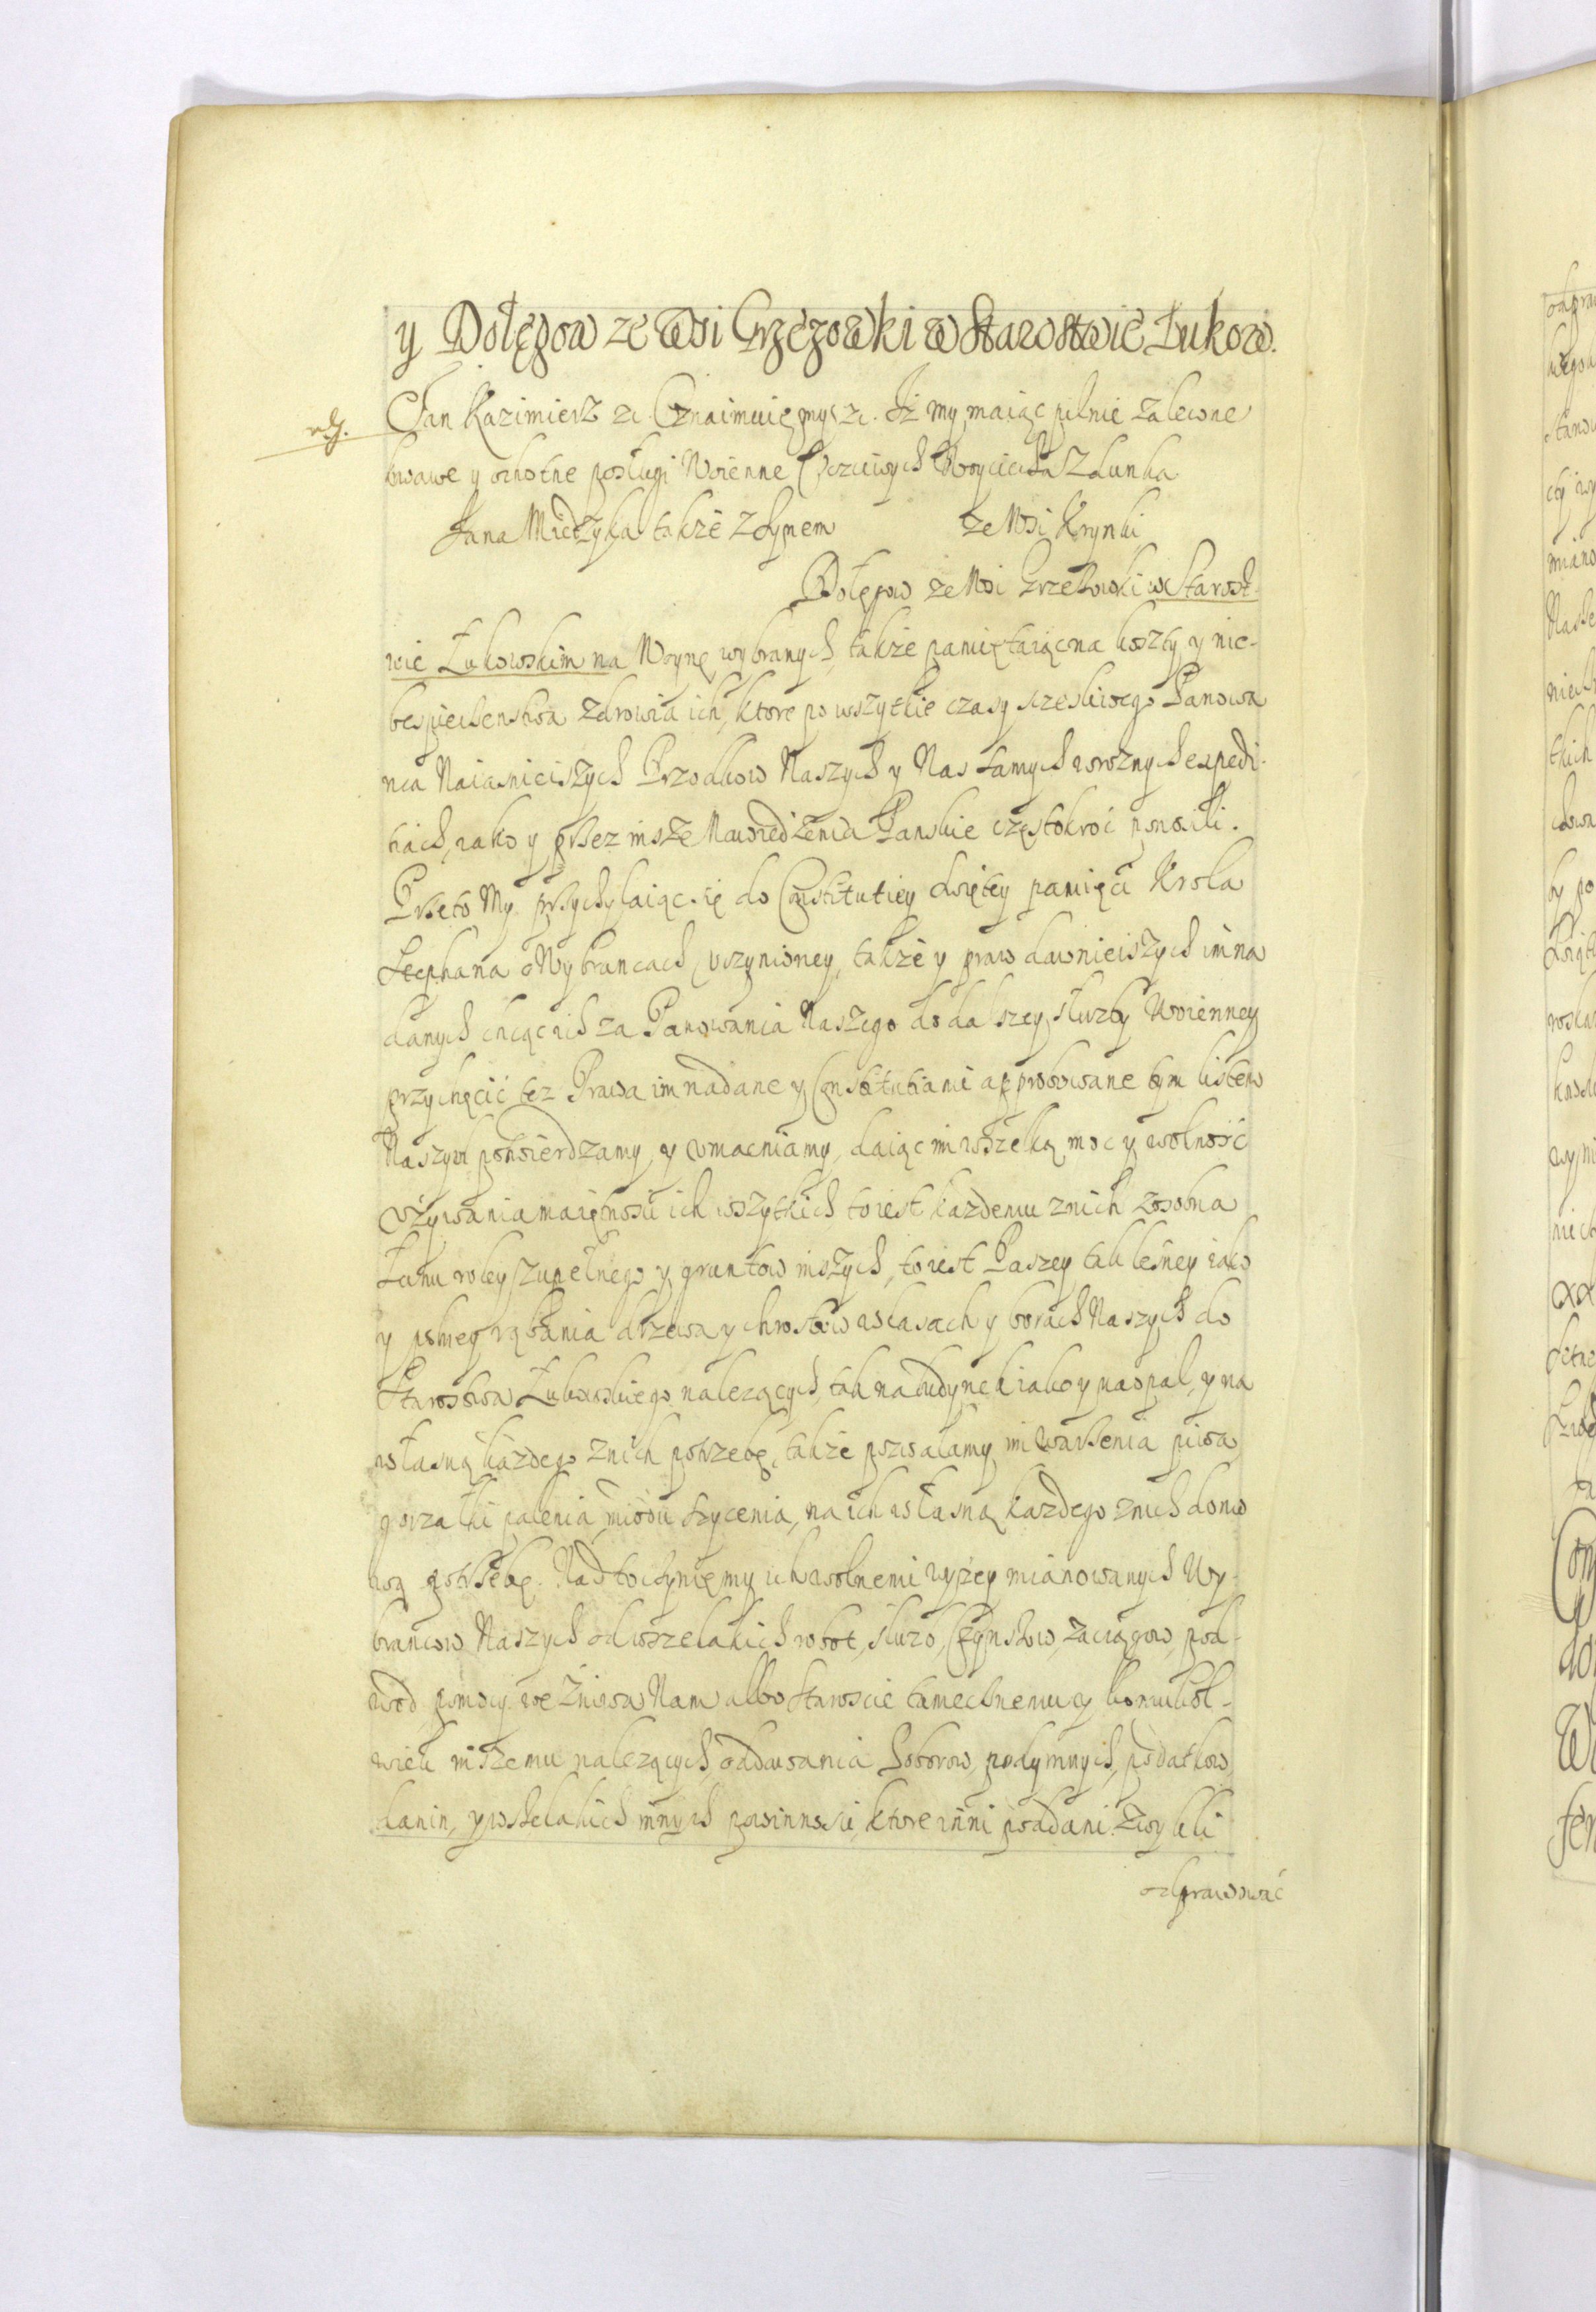 y Dołęgow ze Wsi Grzęzowki w Starostwie Łukow.
Jan Kazimierz &c. Oznaimuięmy &c. Iż my maiąc pilnie zalecone
krwawe y ochotne posługi Woienne Uczciwych Woyciecha Zdunka
Jana Miedzyka także z Synem ze Wsi Krynki
Dołęgow ze Wsi Grzezowki w Starost-
wie Łukowskim na Woynę wybranych, także pamiętaiąc na koszty y nie-
bespieczenstwa zdrowia ich, ktore po wszytkie czasy szczesliwego Panowa
nia Naiasnieiszych Przodkow Naszych y Nas samych w roznych expedi-
tiach, iako y przez insze Nawiedzenia Panskie częstokroć ponosili.
Przeto My przychylaiąc się do Constitutiey swiętey pamięci Krola
Stephana o Wybrancach uczynioney, także y praw dawnieiszych im na
danych chcąc ich za Panowania Naszego do dalszey służby Woienney
przychęcić też Prawa im nadane y Constitutiami approbowane tym listem
Naszym potwierdzamy y umacniamy, daiąc im wszelką moc y wolność
używania maiętnosci ich wszytkich, to iest każdemu z nich zosobna
Łanu roley zupełnego y gruntow inszych, to iest Paszey tak leśney iako
y polney rąbania drzewa y chrostow w lasach y borach Naszych do
Starostwa Łukowskiego należących, tak na budynek iako y na opał, y na
własną każdego z nich potrzebę, także pozwalamy im warzenia piwa
gorzałki palenia, miodu sycenia, na ich własną każdego z nich domo
wą potrzebę. Nadto czynięmy ich wolnemi wyżey mianowanych Wy-
brancow Naszych od wszelakich robot, służb, Czynszow, zaciągow, pod-
wod, pomocy we żniwa Nam albo Staroscie tamecznemu y komukol-
wiek inszemu należących, oddawania Poborow, podymnych, podatkow,
danin, y wszelakich innych powinnosci, ktore inni poddani zwykli
odprawować